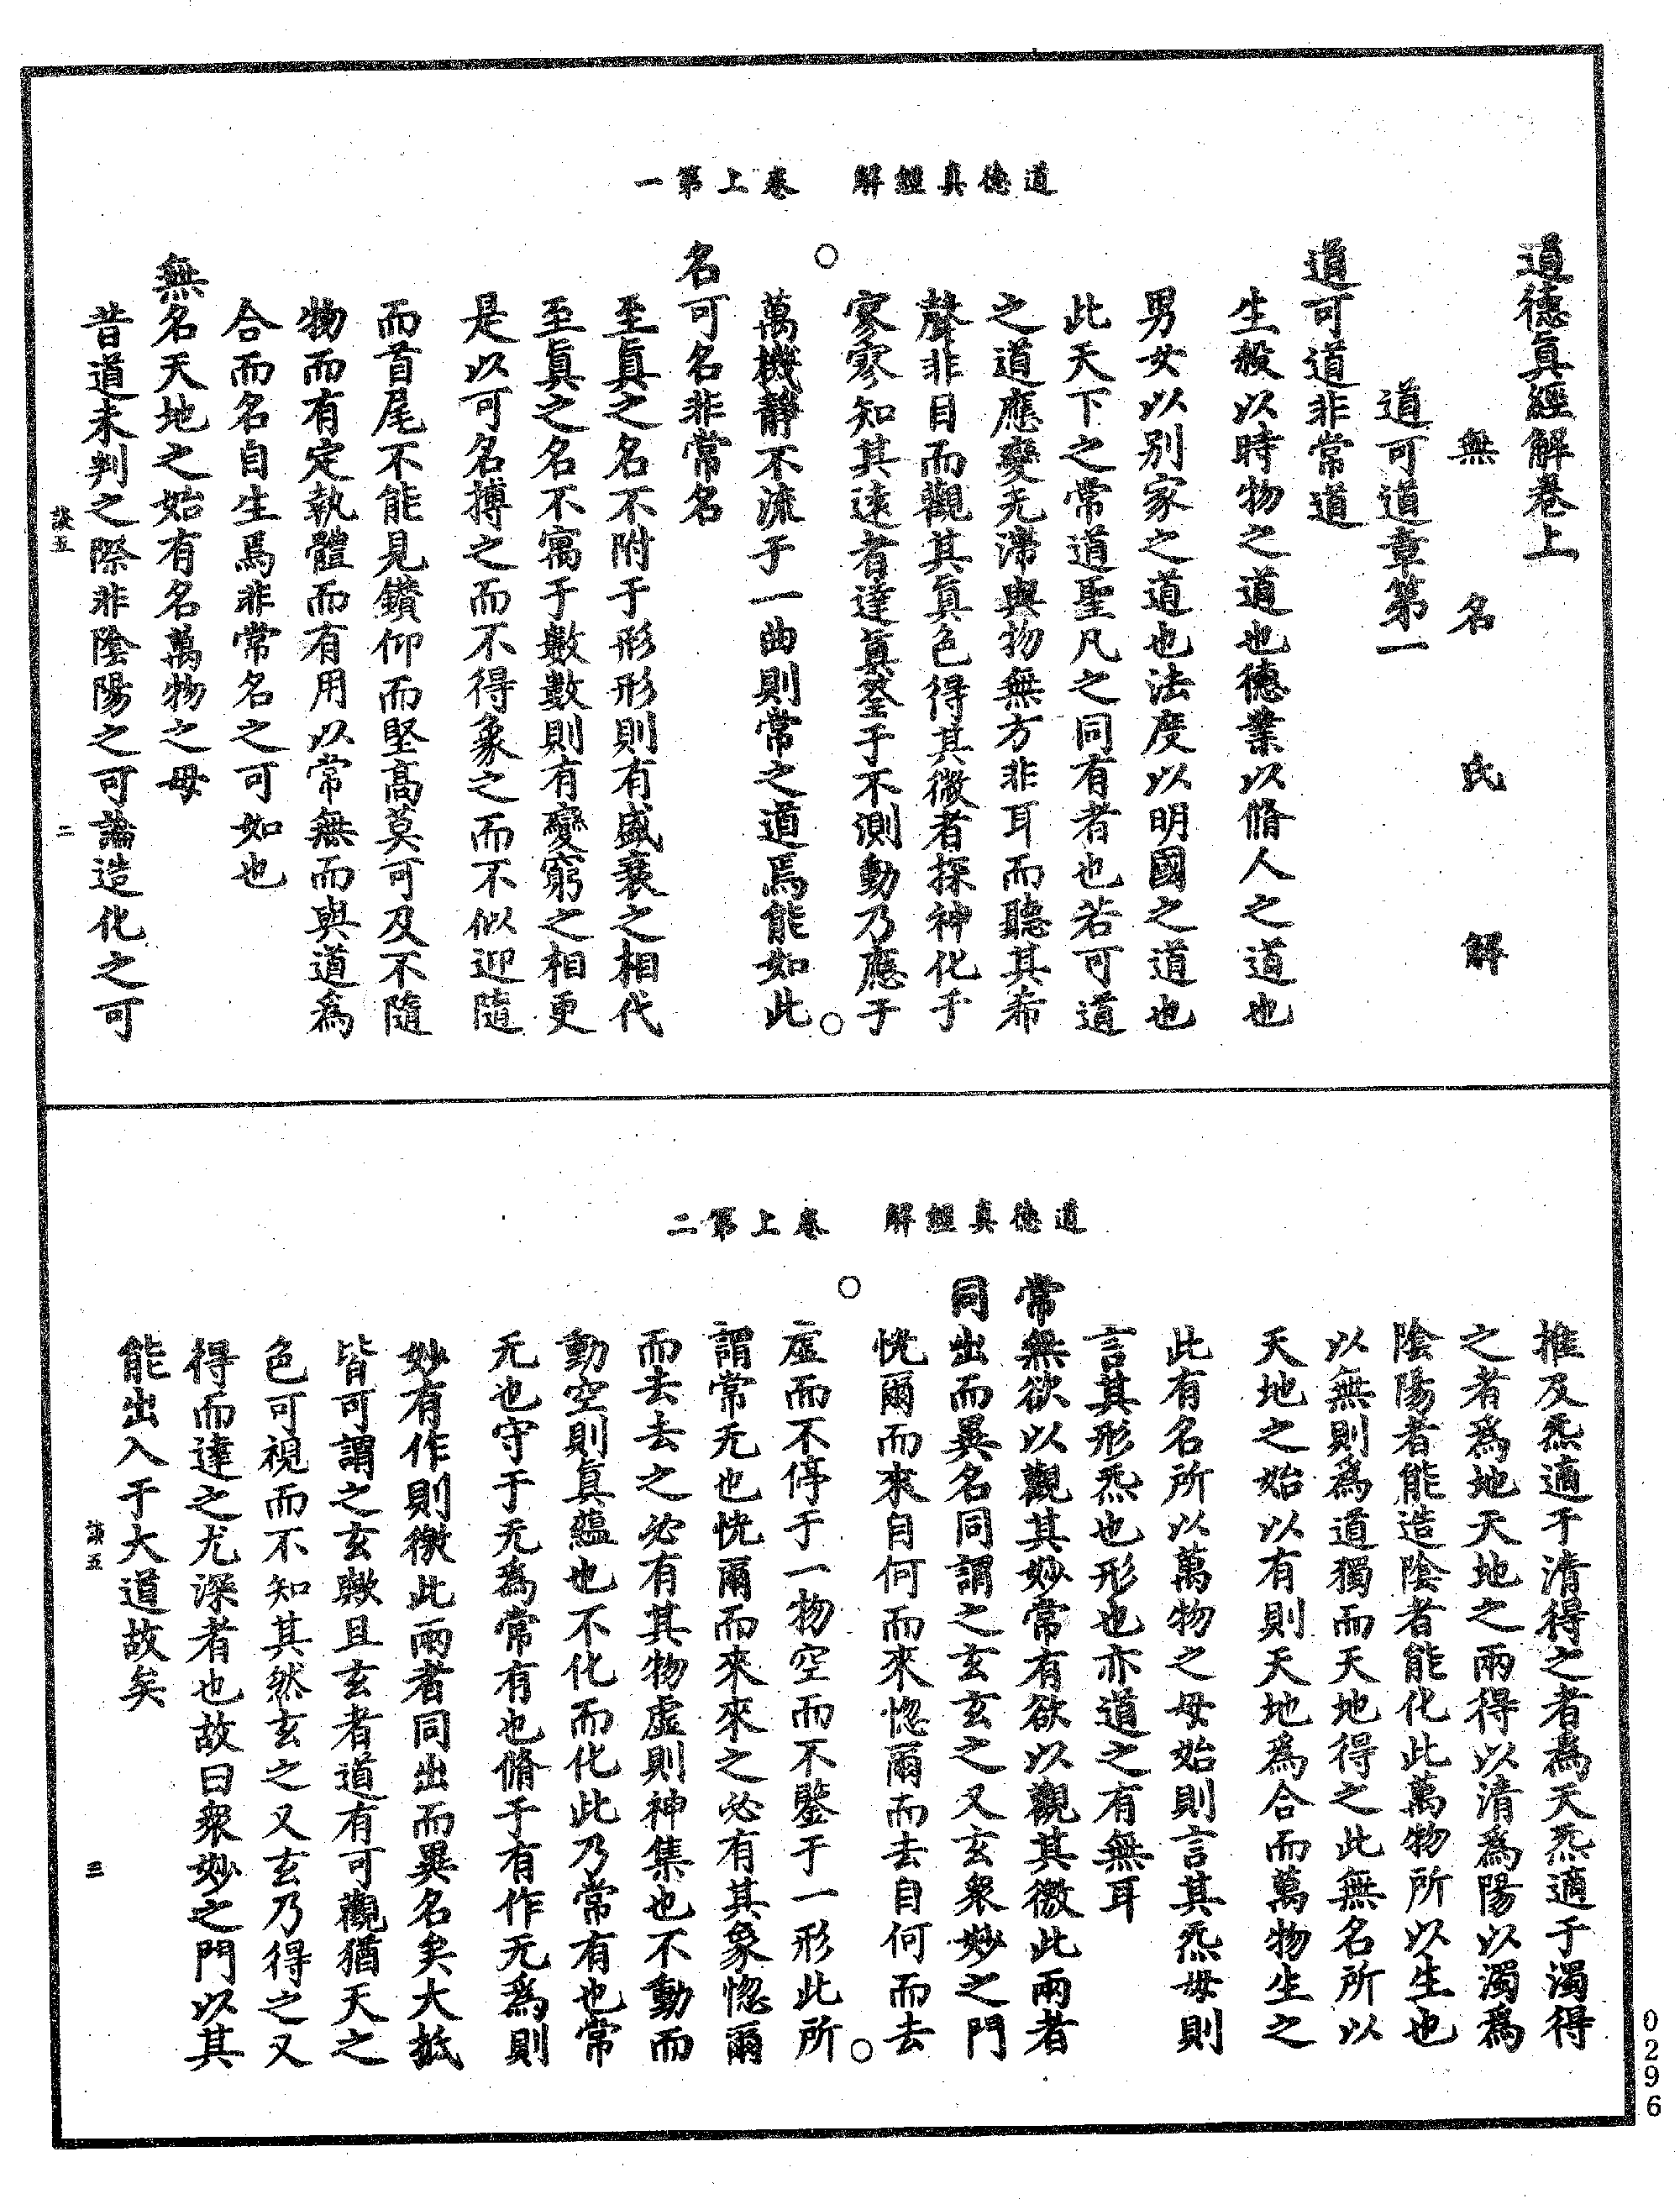 道德真經解　卷上第一
道德眞經解卷上
無名氏解
道可道章第一
道可道非常道
生殺以時物之道也德業以脩人之道也
男女以别家之道也法度以明國之道也
此天下之常道聖凡之同有者也若可道
之道應變无滯與物無方非耳而聽其希
聲非目而觀其眞色得其微者探神化于
寥寥知其遠者達眞筌于不測動乃應于
萬機靜不流于一曲則常之道焉能如此
名可名非常名
至眞之名不附于形形則有盛衰之相代
至眞之名不寓于數數則有變窮之相更
是以可名搏之而不得象之而不似迎隨
而首尾不能見鑚仰而堅高莫可及不隨
物而有定執體而有用以常無而與道爲
合而名自生焉非常名之可如也
無名天地之始有名萬物之母
昔道未判之際非陰陽之可論造化之可
談五　二
道德真經解　卷上第二
推及炁適于清得之者爲天炁適于濁得
之者爲地天地之兩得以清爲陽以濁爲
陰陽者能造陰者能化此萬物所以生也
以無則爲道獨而天地得之此無名所以
天地之始以有則天地爲合而萬物生之
此有名所以萬物之母始則言其炁母則
言其形炁也形也亦道之有無耳
常無欲以觀其妙常有欲以觀其徼此兩者
同出而異名同謂之玄玄之又玄衆妙之門
恍爾而來自何而來惚爾而去自何而去
虛而不停于一物空而不墜于一形此所
謂常无也恍爾而來來之必有其象惚爾
而去去之必有其物虛則神集也不動而
動空則真蘊也不化而化此乃常有也常
无也守于无爲常有也脩于有作无爲則
妙有作則徼此兩者同出而異名矣大抵
皆可謂之玄歟且玄者道有可觀猶天之
色可視而不知其然玄之又玄乃得之又
得而達之尤深者也故曰衆妙之門以其
能出入于大道故矣
談五　三
0296